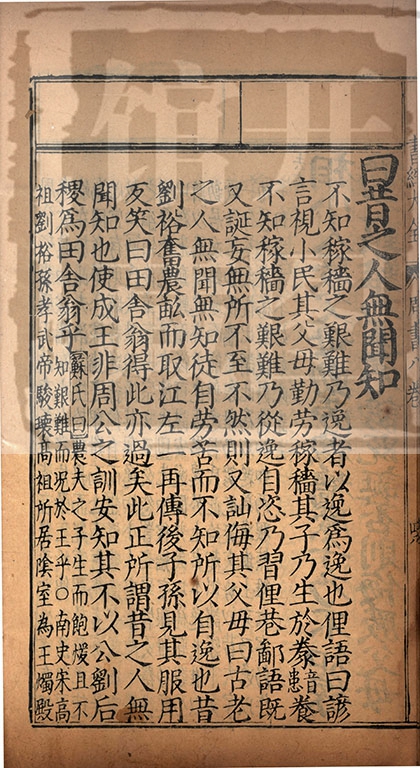 曰昔之人無聞知
不知稼穡之艱難乃逸者以逸爲逸也俚語曰諺
言視小民其父母勤勞稼穡其子乃生於豢音患養
不知稼穡之艱難乃從逸自恣乃習俚巷鄙語旣
又誕妄無所不至不然則又訕侮其父母曰古老
之人無聞無知徒自勞苦而不知所以自逸也昔
劉裕奮農畝而取江左一再傳後子孫見其服用
反笑曰田舍翁得此亦過矣此正所謂昔之人無
聞知也使成王非周公之訓安知其不以公劉后
稷爲田舍翁乎蘇氏曰農夫之子生而飽煖且不
知艱難而况於王乎○南史宋高
祖劉裕孫孝武帝駿壞高祖所居陰室為王燭殿